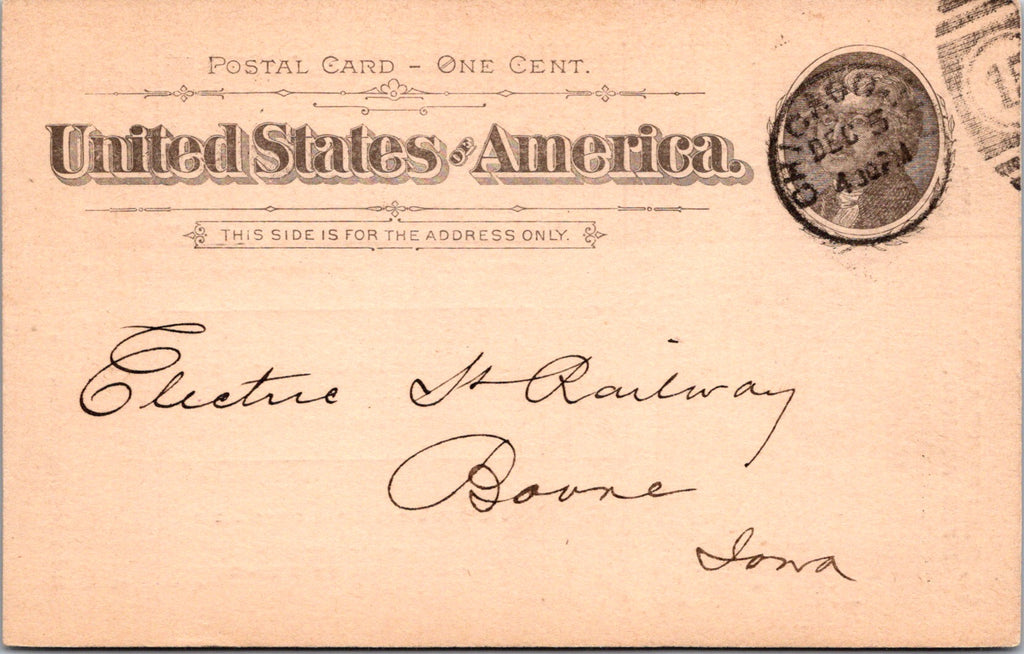 POSTAL CARD - ONE CENT.
United States of America.
THIS SIDE IS FOR THE ADDRESS ONLY.
CHICAGO
DEC 5
Electric St Railway
Boone
Iowa